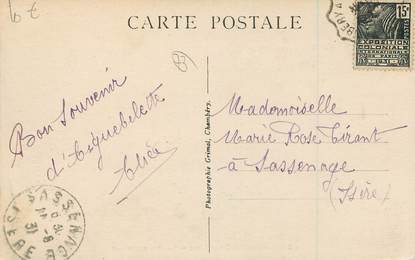 CARTE POSTALE
15c
EXPOSITION
COLONIALE
INTERNATIONALE
PARIS 1931
Bon Souvenir
d'Aiguebelette
Photographie Grimal, Chambéry.
Mademoiselle
Marie Rose Tirant
à Sassenage
(Isère)
SASSENAGE
31
ISERE